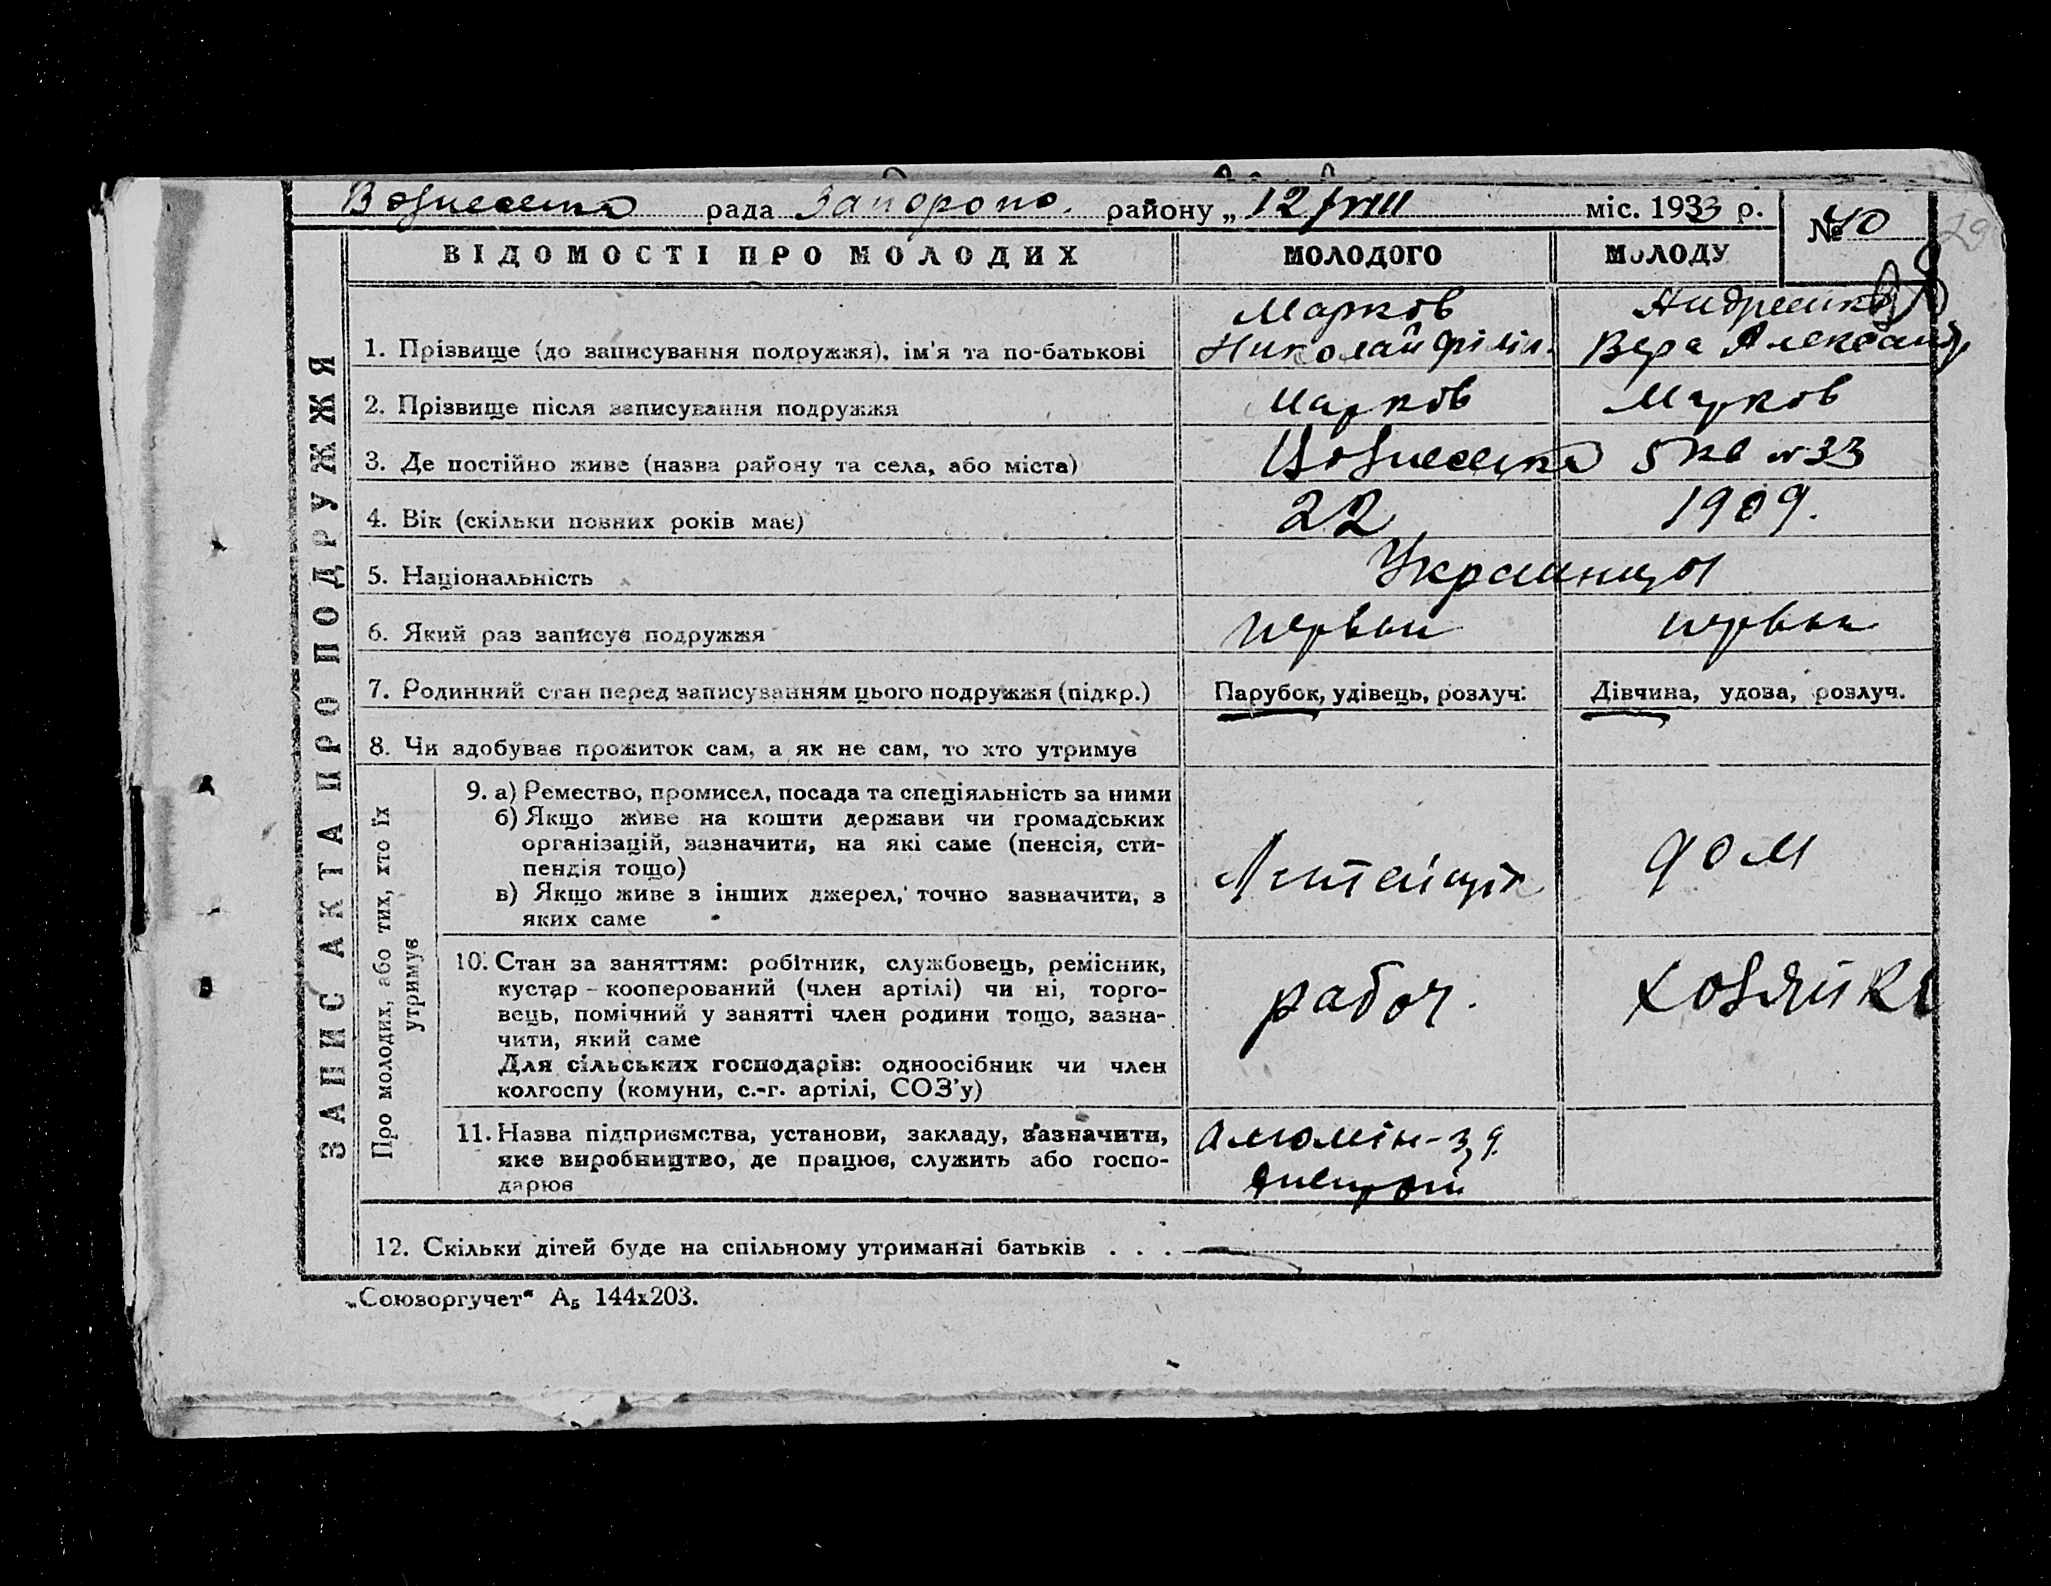 Вознесенка рада Запорожо. району „ 12/VIII міс. 1933 р.
№ 40
29
ВІДОМОСТІ ПРО МОЛОДИХ МОЛОДОГО МОЛОДУ
ЗАПИС АКТА ПРО ПОДРУЖЖЯ
Марков Андреенко
1. Прізвище (до записування подружжя), ім'я та по-батькові Николай Філіп. Вера Александр
2. Прізвище після записування подружжя Марков Марков
3. Де постійно живе (назва району та села, або міста) Вознесенка 5 кв № 33
4. Вік (скільки повних років має) 22 1909.
5. Національність Украинцы
6. Який раз записує подружжя первый первый
7. Родинний стан перед записуванням цього подружжя (підкр.) Парубок, удівець, розлуч. Дівчина, удова, розлуч.
8. Чи здобуває прожиток сам, а як не сам, то хто утримує
Про молодих, або тих, хто їх
утримує
9. а) Ремество, промисел, посада та спеціяльність за ними
б) Якщо живе на кошти держави чи громадських
організацій, зазначити, на які саме (пенсія, сти-
пендія тощо)
в) Якщо живе з інших джерел, точно зазначити, з
яких саме
дом
10. Стан за заняттям: робітник, службовець, ремісник,
кустар – кооперований (член артілі) чи ні, торго-
вець, помічний у занятті член родини тощо, зазна-
чити, який саме
Для сільських господарів: одноосібник чи член
колгоспу (комуни, с.-г. артілі, СОЗ'у)
рабоч. хозяйка
11. Назва підприємства, установи, закладу, зазначити,
яке виробництво, де працює, служить або госпо-
дарює
Алюмін-з д.
Днепрострой
12. Скільки дітей буде на спільному утриманні батьків . . . —
„Союзоргучет" А₅ 144х203.